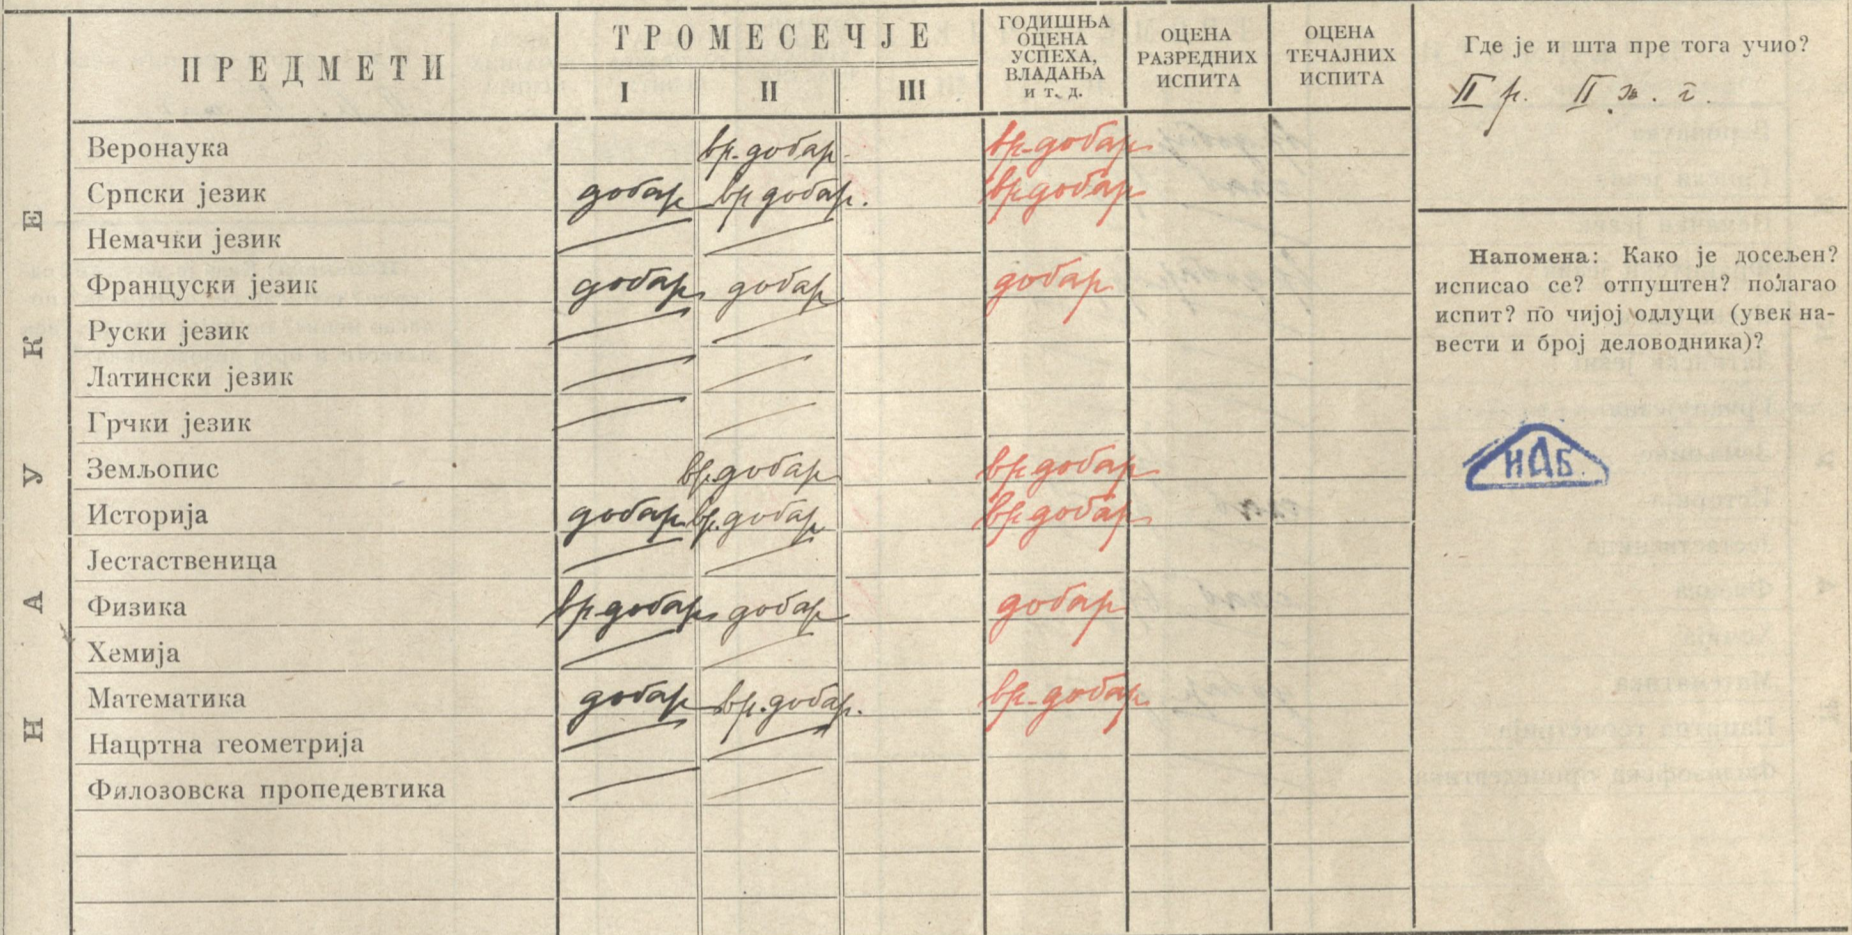 НАУКЕ
ПРЕДМЕТИ
ТРОМЕСЕЧЈЕ
I II III
ГОДИШЊА
ОЦЕНА
УСПЕХА,
ВЛАДАЊА
и т. д.
ОЦЕНА
РАЗРЕДНИХ
ИСПИТА
ОЦЕНА
ТЕЧАЈНИХ
ИСПИТА
Веронаука вр. добар вр. добар
Српски језик добар вр добар. вр добар
Немачки језик
Француски језик добар добар добар
Руски језик
Латински језик
Грчки језик
Земљопис вр. добар вр. добар
Историја добар вр. добар вр. добар
Јестаственица
Физика вр. добар добар добар
Хемија
Математика добар вр. добар. вр. добар
Нацртна геометрија
Филозовска пропедевтика
Где је и шта пре тога учио?
II р. II ж. г.
Напомена: Како је досељен?
исписао се? отпуштен? полагао
испит? по чијој одлуци (увек на-
вести и број деловодника)?
ИАБ